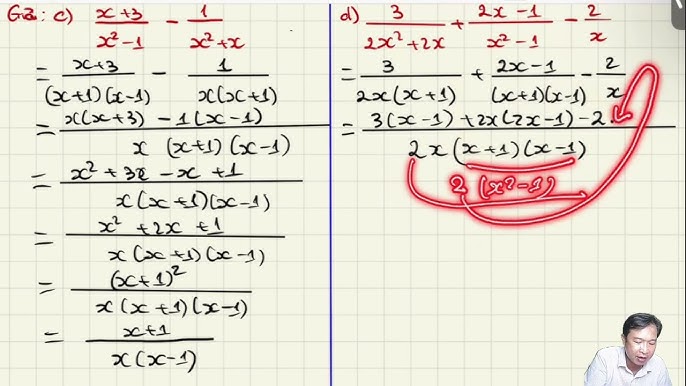 Giải: c) (x+3)/(x²-1) - 1/(x²+x)
= (x+3)/((x+1)(x-1)) - 1/(x(x+1))
= (x(x+3) - 1(x-1))/(x (x+1)(x-1))
= (x² + 3x - x + 1)/(x(x+1)(x-1))
= (x² + 2x + 1)/(x(x+1)(x-1))
= (x+1)²/(x(x+1)(x-1))
= (x+1)/(x(x-1))
d) 3/(2x²+2x) + (2x-1)/(x²-1) - 2/x
= 3/(2x(x+1)) + (2x-1)/((x+1)(x-1)) - 2/x
= (3(x-1) + 2x(2x-1) - 2.)/(2x(x+1)(x-1))
2 (x²-1)